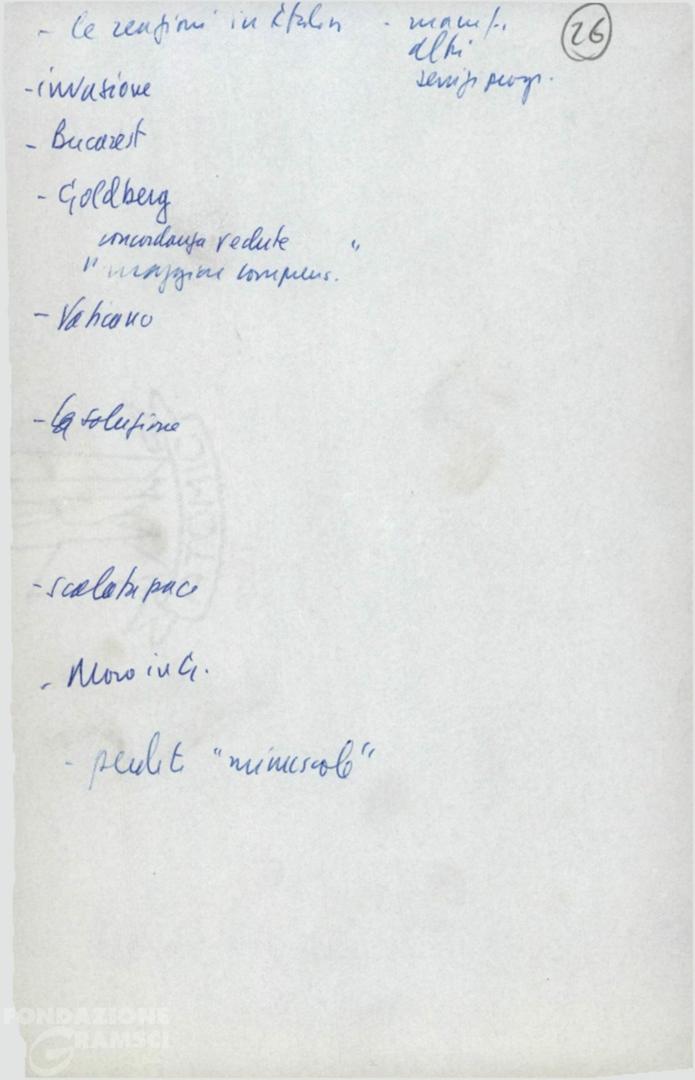 - le reazioni in Italia - manif.
26
altri
servizi progr.
- invasione
- Bucarest
- Goldberg
concordanza vedute "
" maggiore comprens.
- Vaticano
- La soluzione
- scalata pace
- Moro in G.
- perdite "minuscole"
FONDAZIONE
GRAMSCI